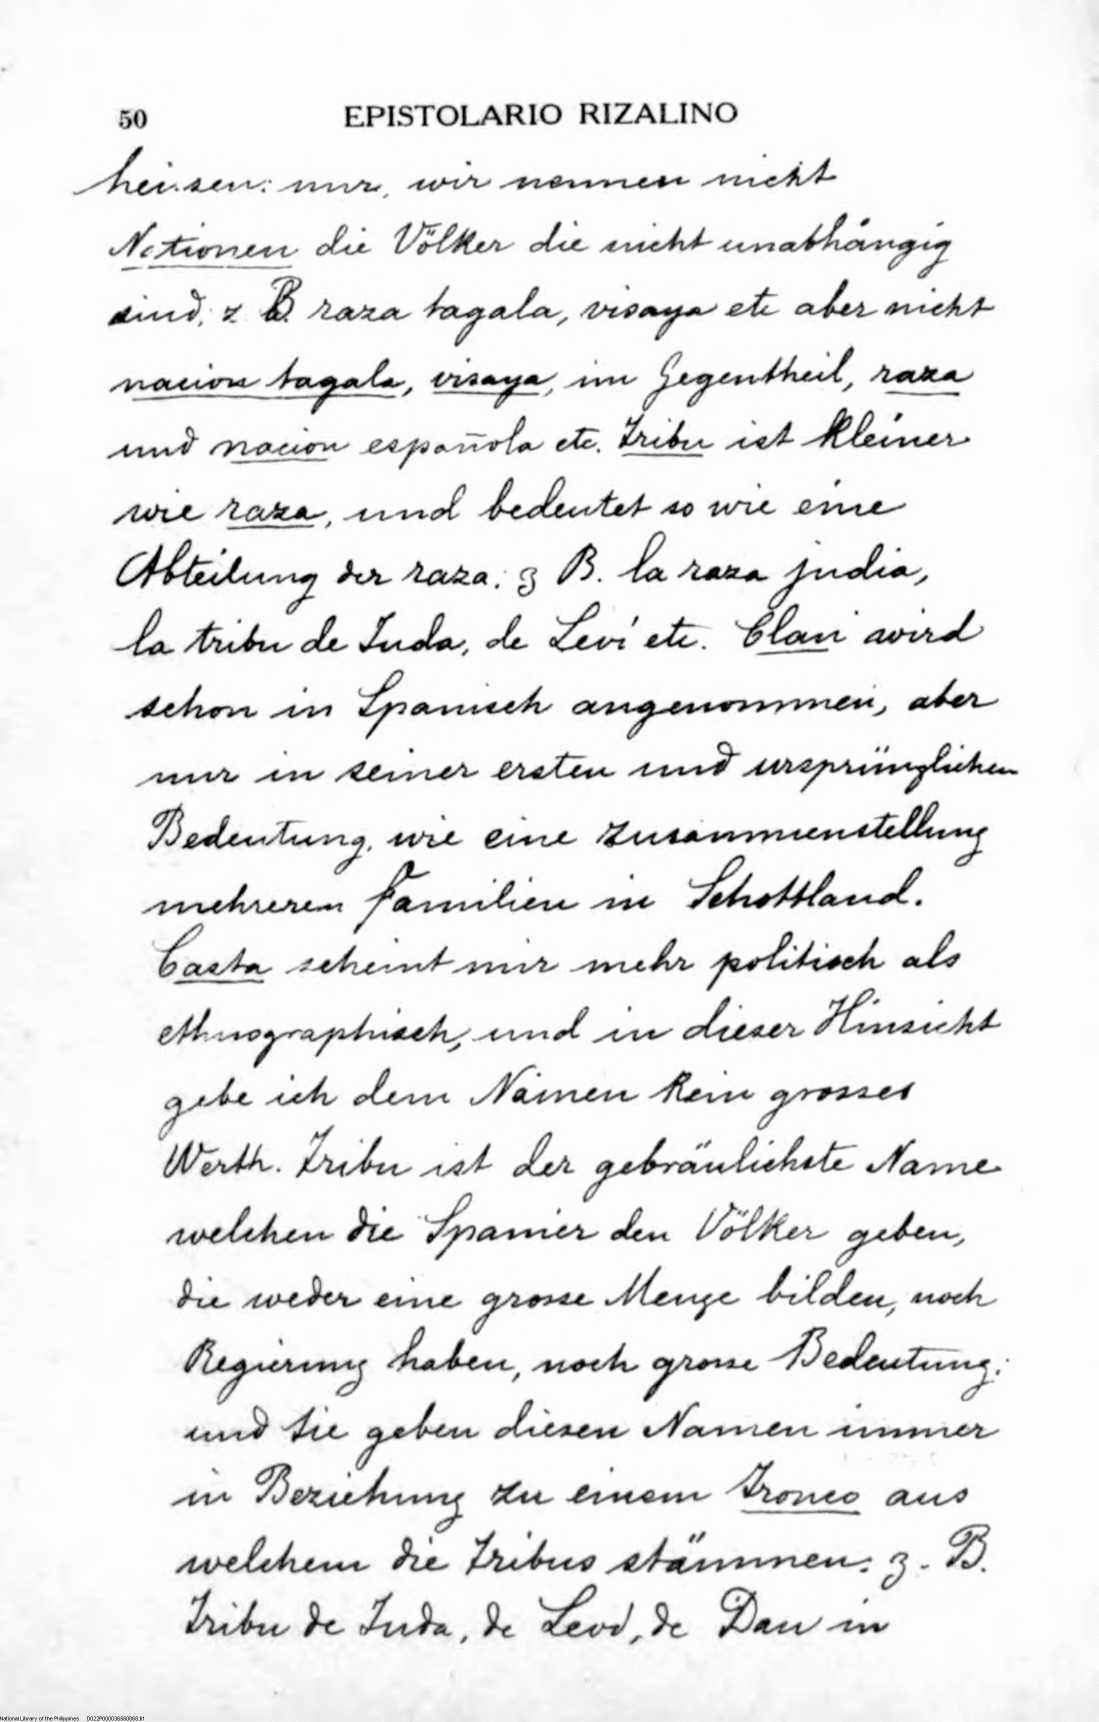 50 EPISTOLARIO RIZALINO
heissen: nur, wir nennen nicht
Nationen die Völker die nicht unabhängig
sind; z B. raza tagala, visaya etc aber nicht
nacion tagala, visaya, im Gegentheil, raza
und nacion española etc. Tribu ist kleiner
wie raza, und bedeutet so wie eine
Abteilung der raza: z B. la raza judia,
la tribu de Juda, de Levi etc. Clan wird
schon in Spanisch angenommen, aber
nur in seiner ersten und ursprünglichen
Bedeutung, wie eine Zusammenstellung
mehreren Familien in Schottland.
Casta scheint mir mehr politisch als
ethnographisch, und in dieser Hinsicht
gebe ich dem Namen kein grosses
Werth. Tribu ist der gebräulichste Name
welchen die Spanier den Völker geben,
die weder eine grosse Menge bilden, noch
Regierung haben, noch grosse Bedeutung;
und sie geben diesen Namen immer
in Beziehung zu einem Tronco aus
welchem die Tribus stämmen: z. B.
Tribu de Juda, de Levi, de Dan in
National Library of the Philippines